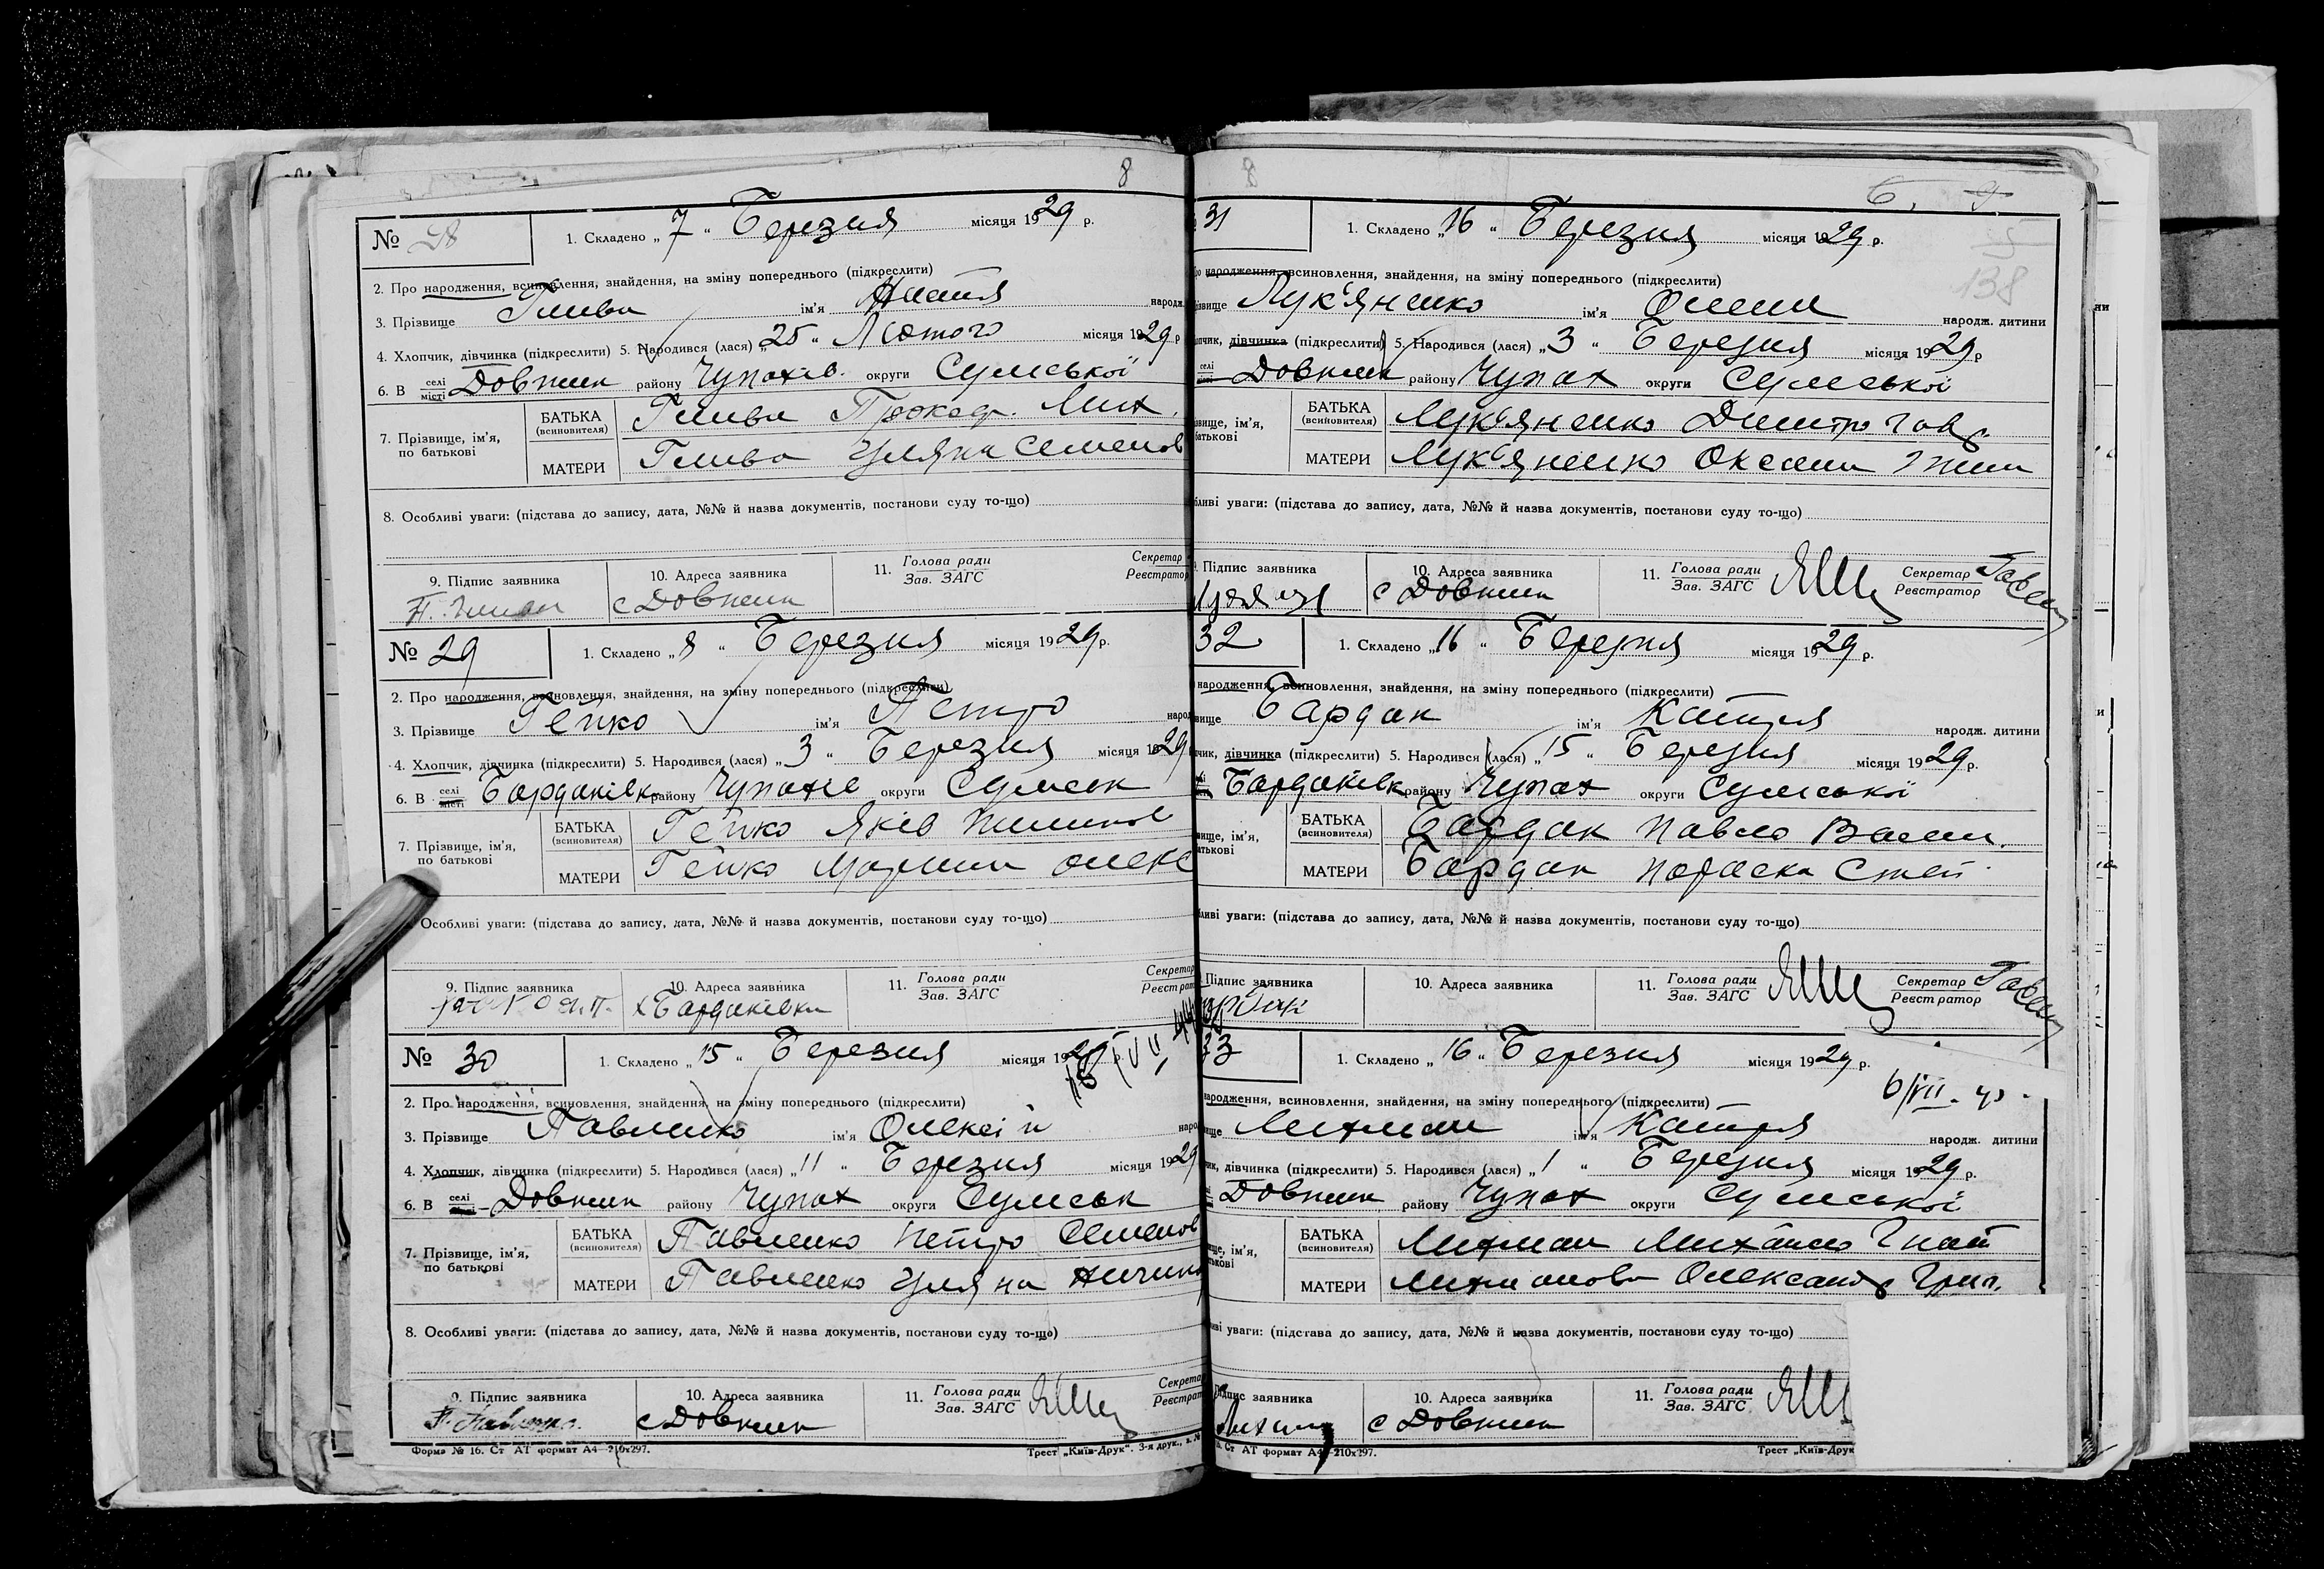 8
№ 28
1. Складено „7“ Березня місяця 1929 р.
2. Про народження, всиновлення, знайдення, на зміну попереднього (підкреслити)
3. Прізвище ім'я народж.
4. Хлопчик, дівчинка (підкреслити) 5. Народився (лася) „25“ Лютого місяця 1929 р
6. В селі місті Довжик району Чупахів. округи Сумської
7. Прізвище, ім'я, по батькові
БАТЬКА (всиновителя) Мих.
МАТЕРИ Уляна Семенов
8. Особливі уваги: (підстава до запису, дата, №№ й назва документів, постанови суду то-що)
9. Підпис заявника
10. Адреса заявника
с Довжик
11. Голова ради Зав. ЗАГС
Секретар Реєстратор
№ 29
1. Складено „8“ Березня місяця 1929 р.
2. Про народження, всиновлення, знайдення, на зміну попереднього (підкреслити)
3. Прізвище Гейко ім'я Петро народ
4. Хлопчик, дівчинка (підкреслити) 5. Народився (лася) „3“ Березня місяця 1929
6. В селі Бардаківк району Чупахів округи Сумськ
7. Прізвище, ім'я, по батькові
БАТЬКА (всиновителя) Гейко Яків Пилипов
МАТЕРИ Гейко Марина Олекс
Особливі уваги: (підстава до запису, дата, №№ й назва документів, постанови суду то-що)
9. Підпис заявника
10. Адреса заявника
х Бардаківка
11. Голова ради Зав. ЗАГС
Секретар Реєстрат
№ 30
1. Складено „15“ Березня місяця 1929 р.
2. Про народження, всиновлення, знайдення, на зміну попереднього (підкреслити)
3. Прізвище Павленко ім'я Олексій наро
4. Хлопчик, дівчинка (підкреслити) 5. Народився (лася) „11“ Березня місяця 1929
6. В селі Довжик району Чупах округи Сумськ
7. Прізвище, ім'я, по батькові
БАТЬКА (всиновителя) Павленко Петро Семенов
МАТЕРИ Павленко Уляна
8. Особливі уваги: (підстава до запису, дата, №№ й назва документів, постанови суду то-що)
9. Підпис заявника
П. Павленко.
10. Адреса заявника
с Довжик
11. Голова ради Зав. ЗАГС
Секретар Реєстрат
Форма № 16. Ст АТ формат А4—210х297.
Трест „Київ-Друк“. 3-я друк., з. №
8
138
31
1. Складено „16“ Березня місяця 1929 р.
народження, всиновлення, знайдення, на зміну попереднього (підкреслити)
Лук'яненко ім'я Олена народж. дитини
дівчинка (підкреслити) 5. Народився (лася) „3“ Березня місяця 1929 р
селі Довжик району Чупах округи Сумської
ім'я,
БАТЬКА (всиновителя) Лук'яненко Дмитро Гавр.
МАТЕРИ Лук'яненко Оксана
уваги: (підстава до запису, дата, №№ й назва документів, постанови суду то-що)
Підпис заявника
10. Адреса заявника
с Довжик
11. Голова ради Зав. ЗАГС
Секретар Реєстратор
32
1. Складено „16“ Березня місяця 1929 р.
народження, всиновлення, знайдення, на зміну попереднього (підкреслити)
Бардак ім'я Катря народж. дитини
дівчинка (підкреслити) 5. Народився (лася) „15“ Березня місяця 1929 р.
Бардаківк району Чупах округи Сумської
ім'я,
БАТЬКА (всиновителя) Бардак Павло Васил.
МАТЕРИ Бардак Параска Степ
уваги: (підстава до запису, дата, №№ й назва документів, постанови суду то-що)
Підпис заявника
10. Адреса заявника
11. Голова ради Зав. ЗАГС
Секретар Реєстратор
33
1. Складено „16“ Березня місяця 1929 р.
6/VII - 43.
народження, всиновлення, знайдення, на зміну попереднього (підкреслити)
ім'я Катря народж. дитини
дівчинка (підкреслити) 5. Народився (лася) „1“ Березня місяця 1929 р.
Довжик району Чупах округи Сумської
ім'я,
БАТЬКА (всиновителя) Михайло Гнат
МАТЕРИ Олександр Григ.
уваги: (підстава до запису, дата, №№ й назва документів, постанови суду то-що)
заявника
10. Адреса заявника
с Довжик
11. Голова ради Зав. ЗАГС
Ст АТ формат А4—210х297.
Трест „Київ-Друк